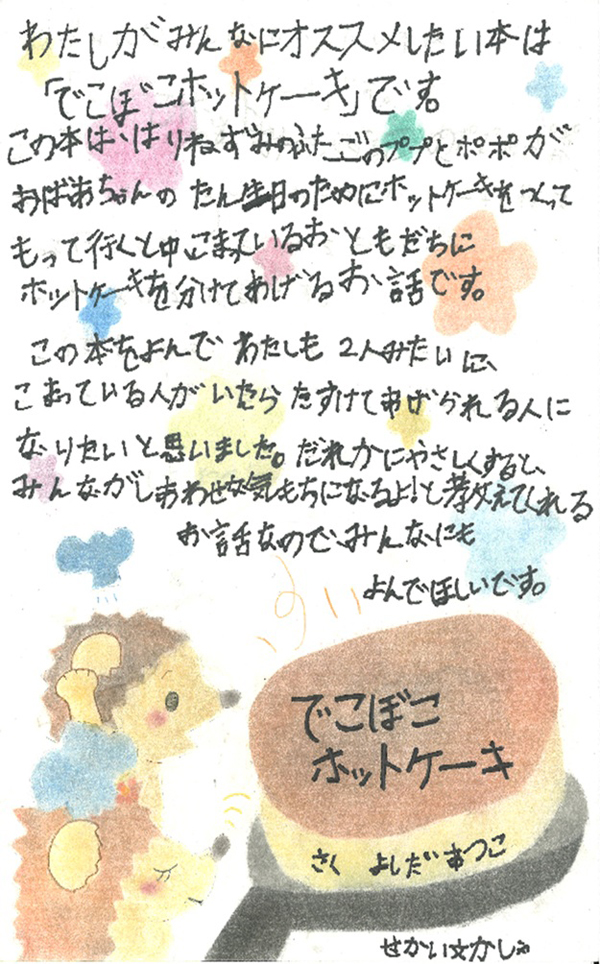 わたしがみんなにオススメしたい本は
「でこぼこホットケーキ」です。
この本は、はりねずみのふたごのププとポポが
おばあちゃんのたん生日のためにホットケーキをつくって
もって行くと中、こまっているおともだちに
ホットケーキを分けてあげるお話です。
この本をよんでわたしも2人みたいに、
こまっている人がいたらたすけてあげられる人に
なりたいと思いました。だれかにやさしくすると、
みんながしあわせな気もちになるよ!と教えてくれる
お話なので、みんなにも
よんでほしいです。
でこぼこ
ホットケーキ
さく よしだあつこ
せかい文かしゃ